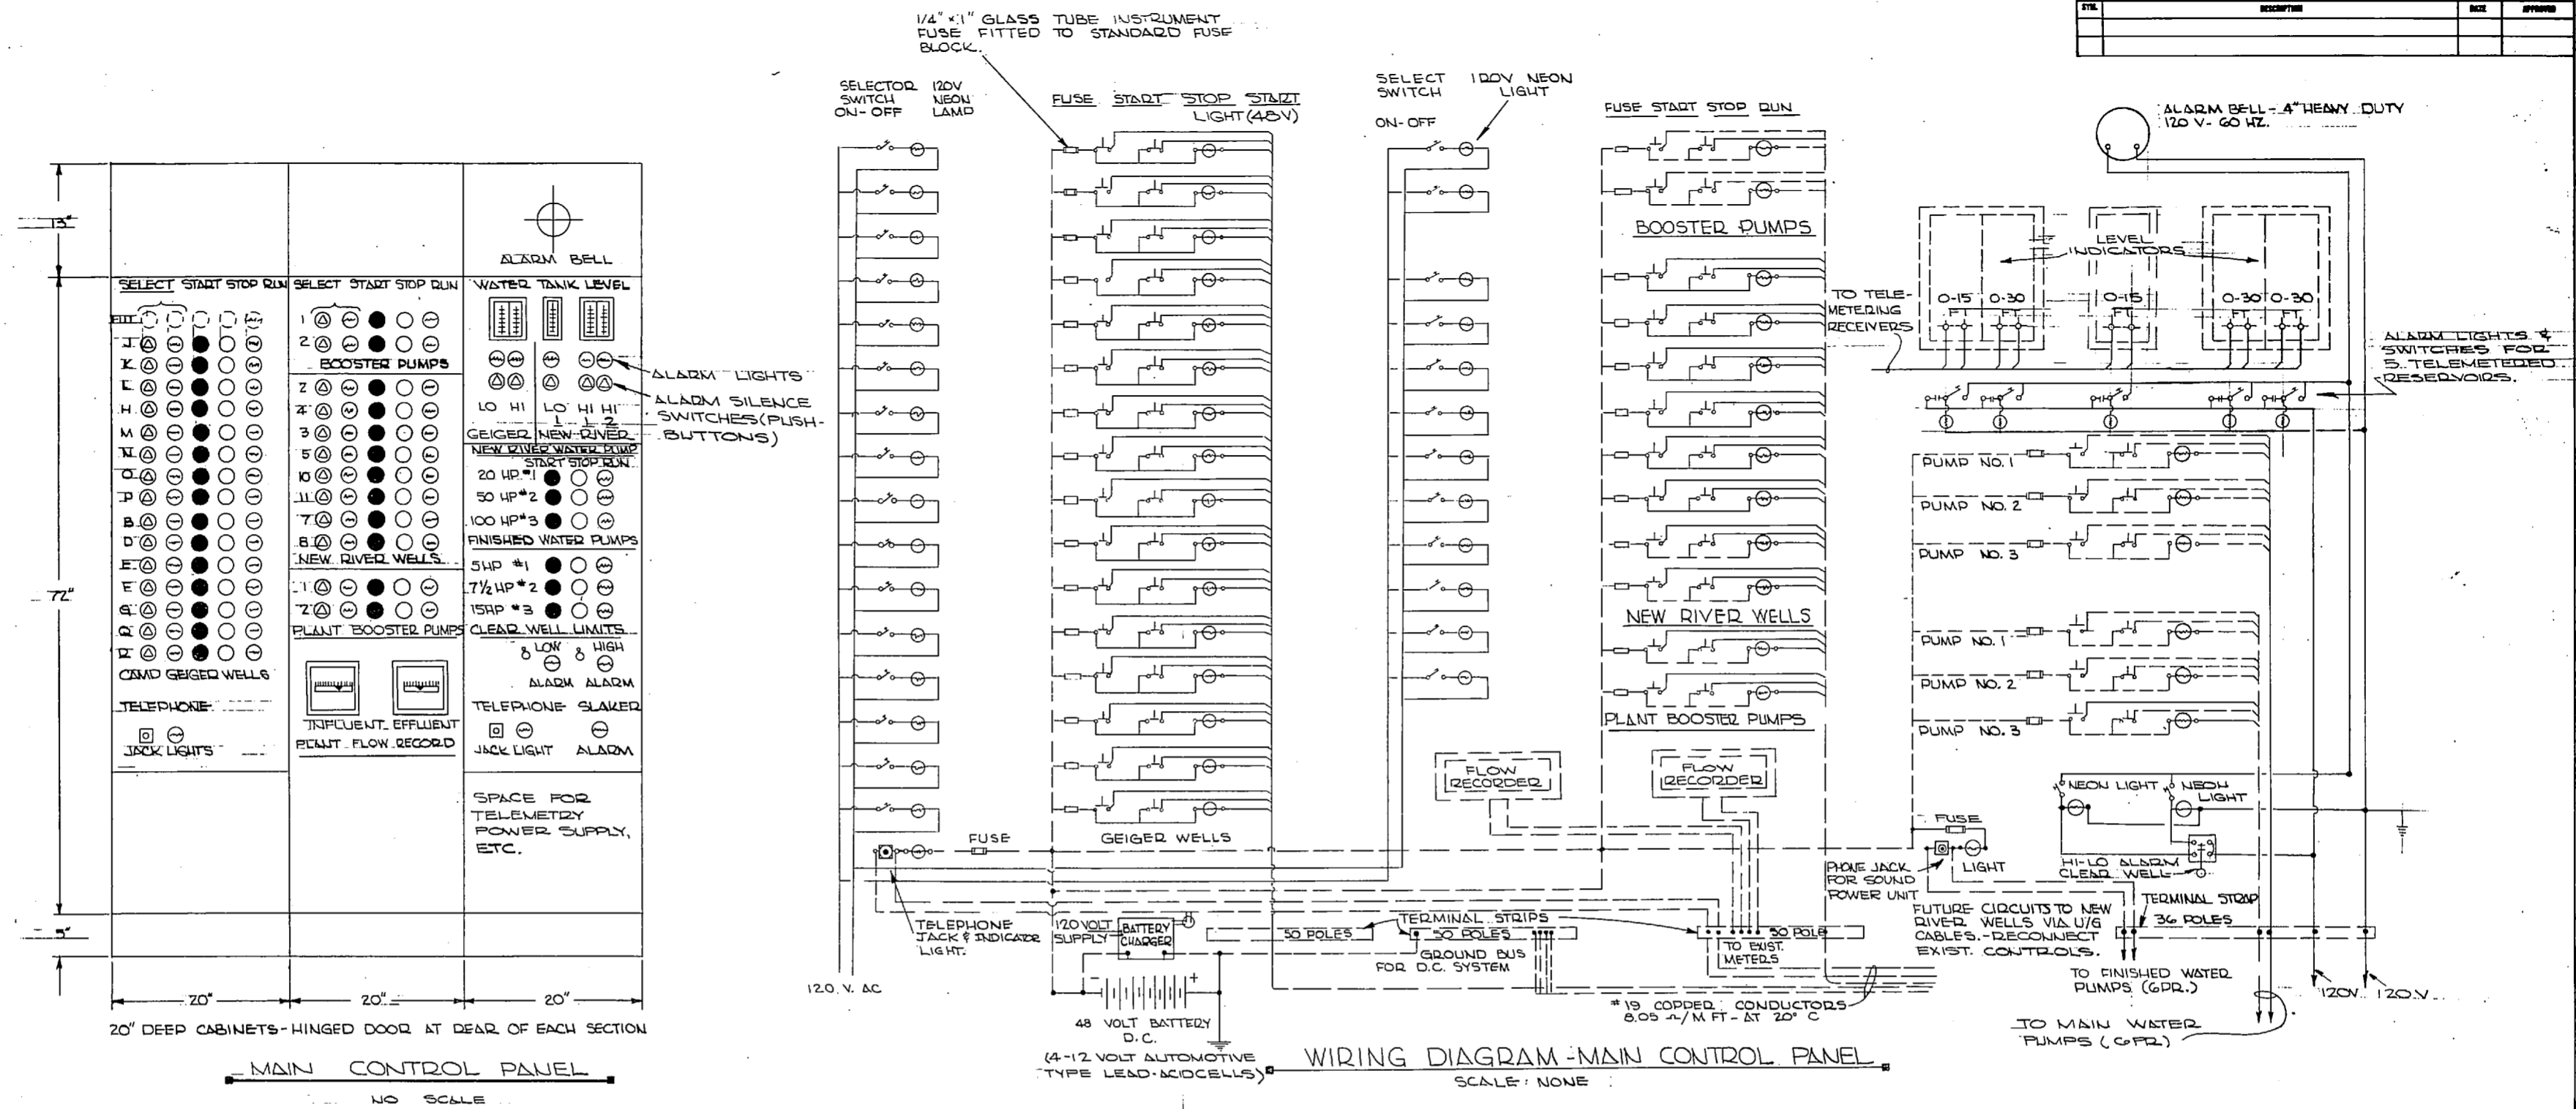 SYM.
DESCRIPTION
DATE
APPROVED
1/4" x 1" GLASS TUBE INSTRUMENT
FUSE FITTED TO STANDARD FUSE
BLOCK.
SELECTOR
SWITCH
ON-OFF
120V
NEON
LAMP
FUSE START STOP START
LIGHT (48V)
SELECT
SWITCH
ON-OFF
120V NEON
LIGHT
FUSE START STOP RUN
ALARM BELL - 4" HEAVY DUTY
120 V - 60 HZ.
13"
72"
5"
ALARM BELL
SELECT START STOP RUN
FUT.
J
K
L
H
M
N
O
P
B
D
E
G
Q
R
CAMP GEIGER WELLS
TELEPHONE
JACK LIGHTS
SELECT START STOP RUN
1
2
BOOSTER PUMPS
2
4
3
5
10
11
7
8
NEW RIVER WELLS
1
2
PLANT BOOSTER PUMPS
INFLUENT EFFLUENT
PLANT FLOW RECORD
WATER TANK LEVEL
LO HI LO HI HI
1 1 2
GEIGER NEW RIVER
NEW RIVER WATER PUMP
START STOP RUN
20 HP #1
50 HP #2
100 HP #3
FINISHED WATER PUMPS
5HP #1
7½ HP #2
15HP #3
CLEAR WELL LIMITS
LOW HIGH
ALARM ALARM
TELEPHONE SLAKER
JACK LIGHT ALARM
SPACE FOR
TELEMETRY
POWER SUPPLY,
ETC.
ALARM LIGHTS
ALARM SILENCE
SWITCHES (PUSH-
BUTTONS)
20"
20"
20"
20" DEEP CABINETS - HINGED DOOR AT REAR OF EACH SECTION
MAIN CONTROL PANEL
NO SCALE
GEIGER WELLS
FUSE
TELEPHONE
JACK & INDICATOR
LIGHT.
120 V. AC
120 VOLT
SUPPLY
BATTERY
CHARGER
48 VOLT BATTERY
D.C.
(4-12 VOLT AUTOMOTIVE
TYPE LEAD-ACID CELLS)
BOOSTER PUMPS
NEW RIVER WELLS
PLANT BOOSTER PUMPS
FLOW
RECORDER
FLOW
RECORDER
TERMINAL STRIPS
50 POLES
50 POLES
50 POLE
GROUND BUS
FOR D.C. SYSTEM
TO EXIST.
METERS
#19 COPPER CONDUCTORS
8.05 Ω/M FT - AT 20° C
WIRING DIAGRAM - MAIN CONTROL PANEL
SCALE: NONE
LEVEL
INDICATORS
0-15 0-30
FT FT
0-15
FT
0-30 0-30
FT FT
TO TELE-
METERING
RECEIVERS
ALARM LIGHTS &
SWITCHES FOR
5 TELEMETERED
RESERVOIRS.
PUMP NO. 1
PUMP NO. 2
PUMP NO. 3
PUMP NO. 1
PUMP NO. 2
PUMP NO. 3
NEON LIGHT
NEON
LIGHT
FUSE
LIGHT
PHONE JACK
FOR SOUND
POWER UNIT
HI-LO ALARM
CLEAR WELL
FUTURE CIRCUITS TO NEW
RIVER WELLS VIA U/G
CABLES. - RECONNECT
EXIST. CONTROLS.
TERMINAL STRAP
36 POLES
TO FINISHED WATER
PUMPS (6PR.)
120V
120V
TO MAIN WATER
PUMPS (6PR)